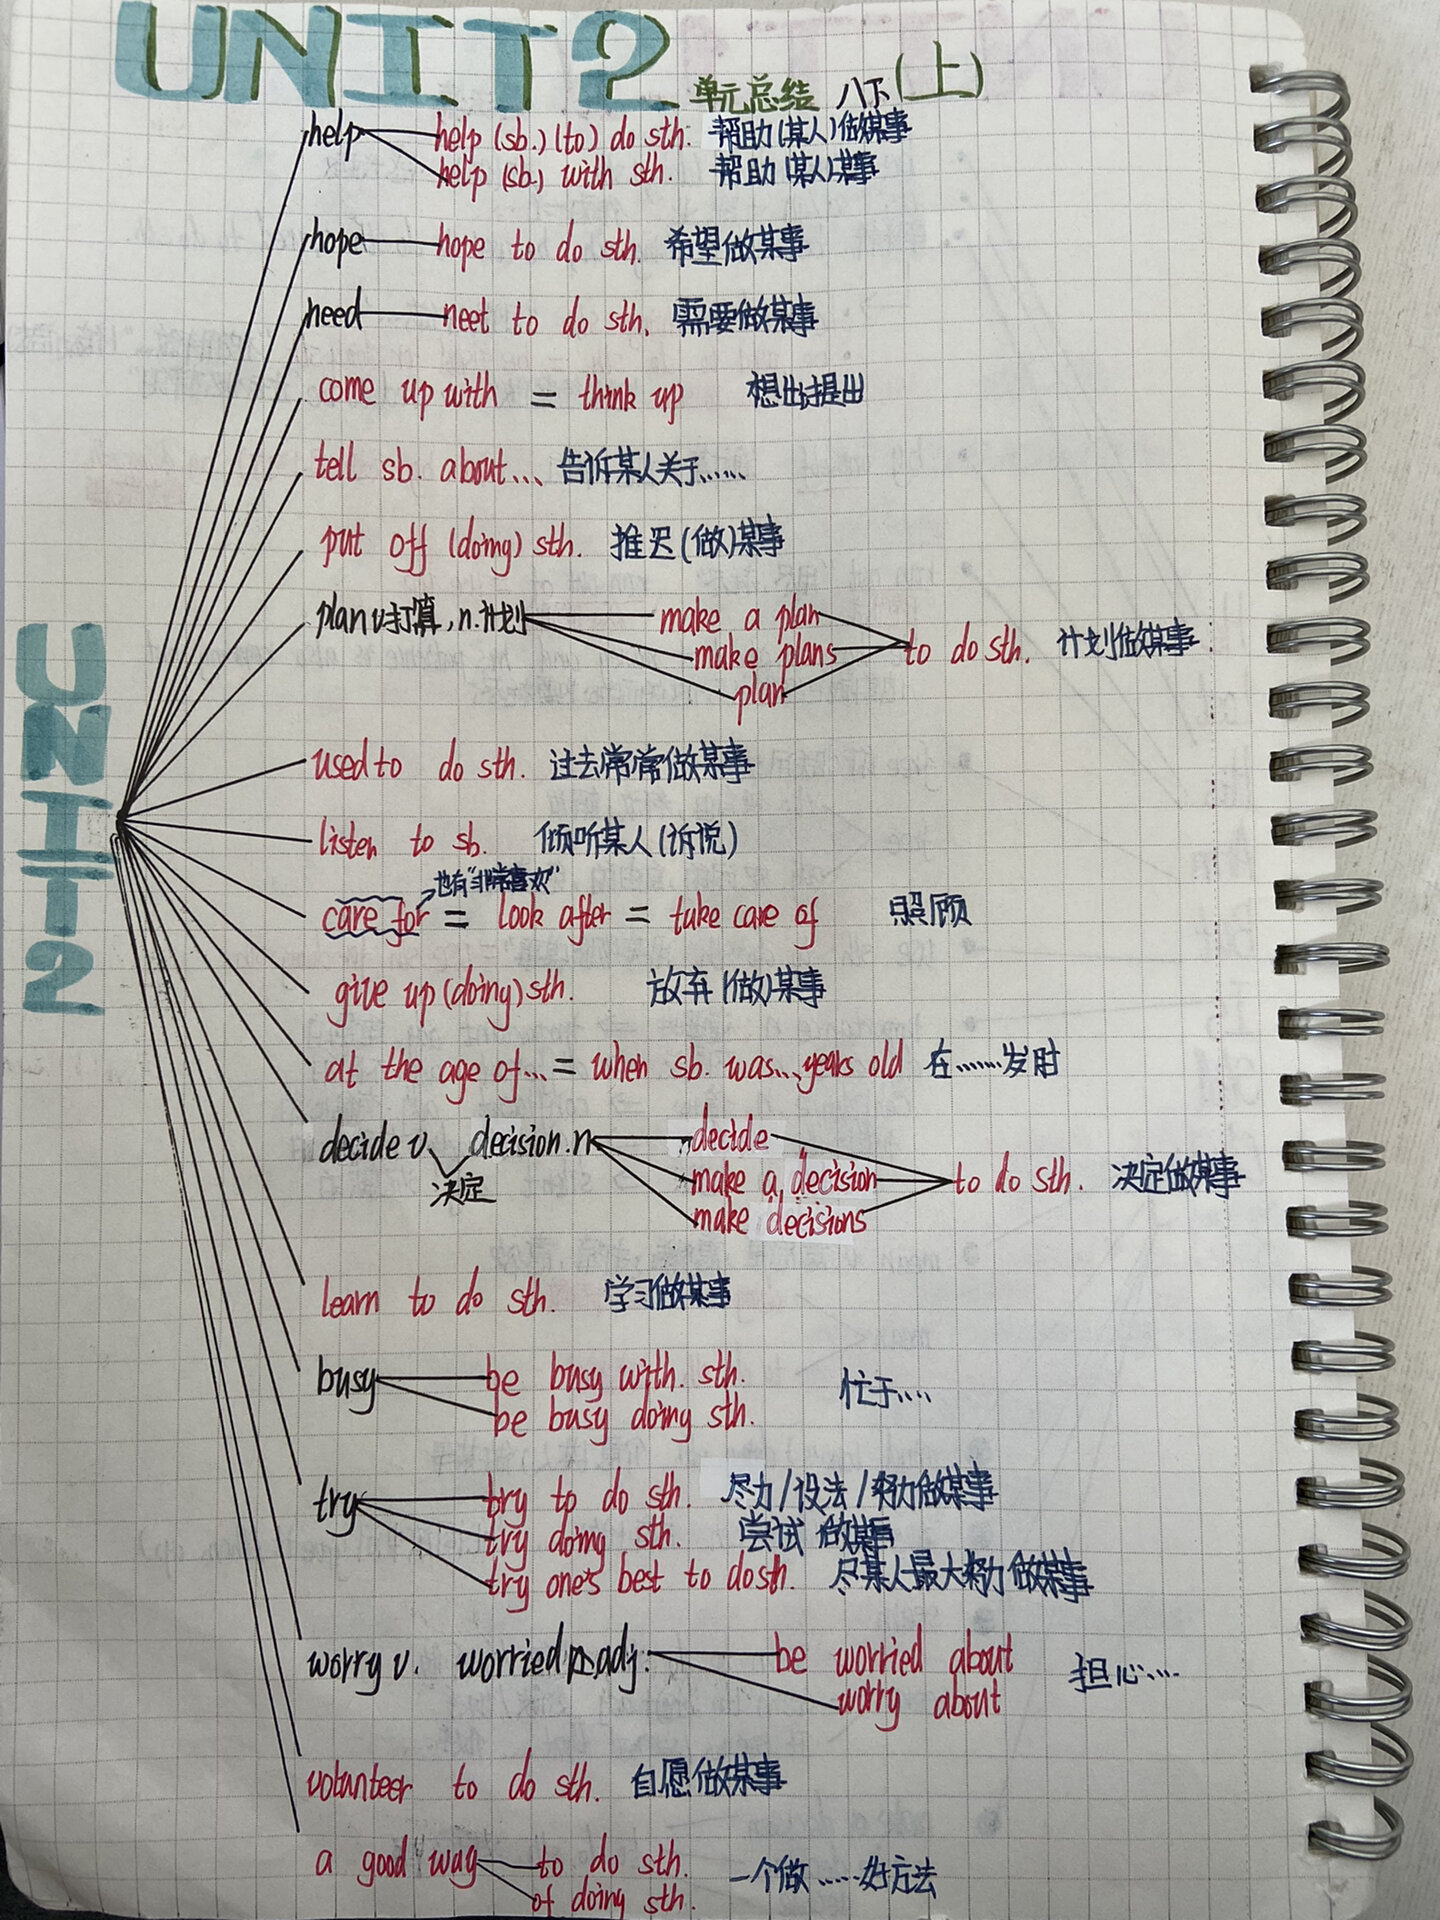 UNIT2 单元总结 八下(上)
UNIT2
help help (sb.) (to) do sth. 帮助(某人)做某事
help (sb.) with sth. 帮助(某人)某事
hope hope to do sth. 希望做某事
need neet to do sth. 需要做某事
come up with = think up 想出;提出
tell sb. about... 告诉某人关于……
put off (doing) sth. 推迟(做)某事
plan v.打算, n.计划 make a plan
make plans to do sth. 计划做某事
plan
used to do sth. 过去常常做某事
listen to sb. 倾听某人(诉说)
也有"非常喜欢"
care for = look after = take care of 照顾
give up (doing) sth. 放弃(做)某事
at the age of... = when sb. was...years old 在……岁时
decide v. decision.n decide
决定 make a decision to do sth. 决定做某事
make decisions
learn to do sth. 学习做某事
busy be busy with. sth. 忙于....
be busy doing sth.
try try to do sth. 尽力/设法/努力做某事
try doing sth. 尝试 做某事
try one's best to do sth. 尽某人最大努力做某事
worry v. worried adj. be worried about 担心....
worry about
volunteer to do sth. 自愿做某事
a good way to do sth. 一个做……好方法
of doing sth.